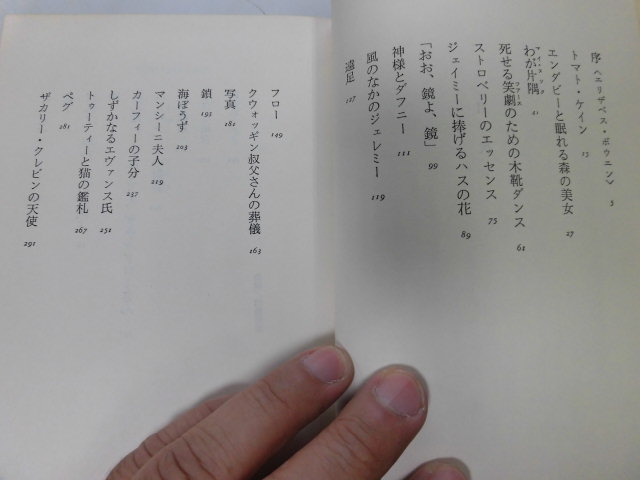 序〈エリザベス・ボウエン〉 5
トマト・ケイン 15
エンダビーと眠れる森の美女 27
わが片隅 41
死せる笑劇のための木靴ダンス 61
ストロベリーのエッセンス 75
ジェイミーに捧げるハスの花 89
「おお、鏡よ、鏡」 99
神様とダフニー 111
風のなかのジェレミー 119
遠足 127
フロー 149
クウォッギン叔父さんの葬儀 163
写真 181
鎖 193
海ぼうず 203
マンシーニ夫人 219
カーフィーの子分 237
しずかなるエヴァンス氏 251
トゥーティーと猫の鑑札 267
ペグ 281
ザカリー・クレビンの天使 291